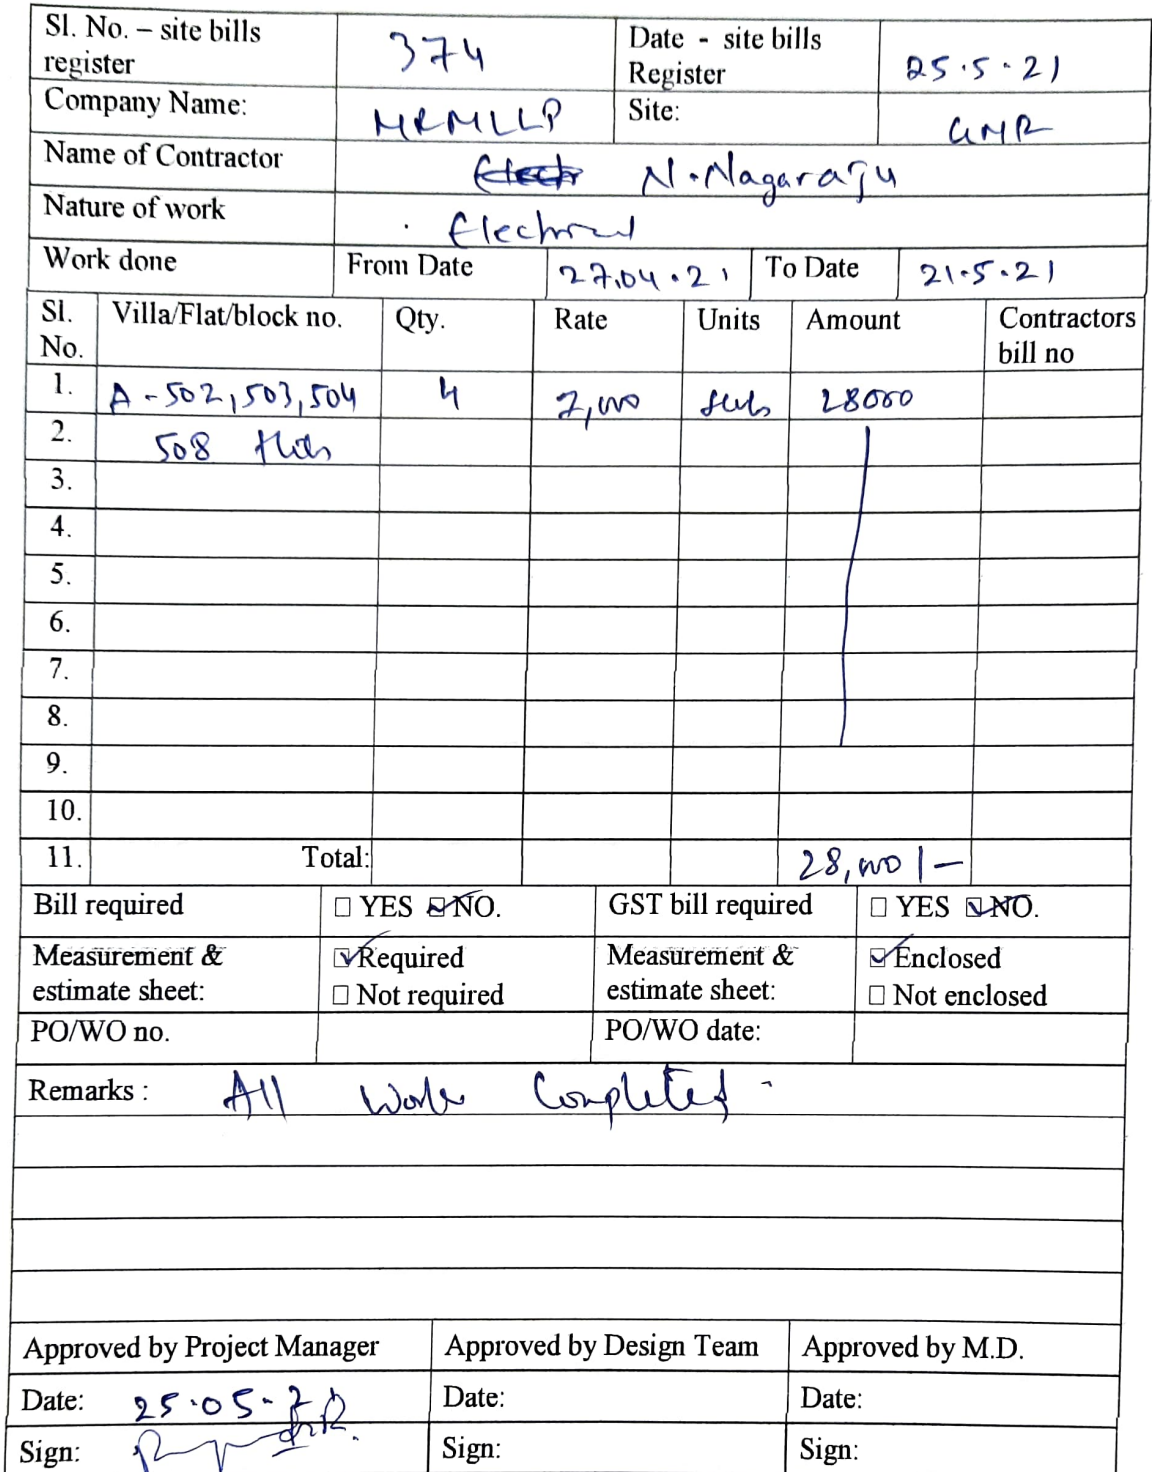 Sl. No. – site bills register 374 Date - site bills Register 25.5.21
Company Name: MRMLLP Site: GMR
Name of Contractor N. Nagaraju
Nature of work Electrical
Work done From Date 27.04.21 To Date 21.5.21
Sl. No. Villa/Flat/block no. Qty. Rate Units Amount Contractors bill no
1. A-502,503,504 4 7,000 28000
2. 508
3.
4.
5.
6.
7.
8.
9.
10.
11. Total: 28,000/-
Bill required □ YES ☑ NO. GST bill required □ YES ☑ NO.
Measurement & estimate sheet: ☑ Required □ Not required Measurement & estimate sheet: ☑ Enclosed □ Not enclosed
PO/WO no. PO/WO date:
Remarks : All Work Completed
Approved by Project Manager Approved by Design Team Approved by M.D.
Date: 25.05. Date: Date:
Sign: Sign: Sign: